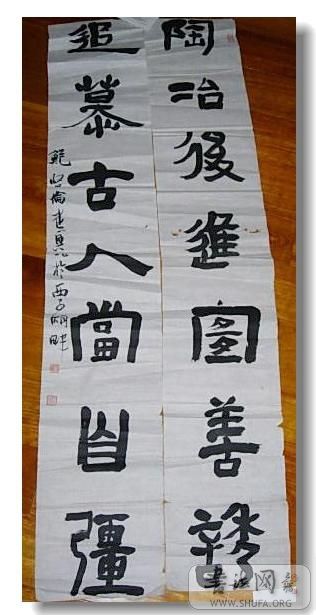 陶冶後進善誘
追慕古人當自彊
鮑賢倫遣興於西子湖畔
书法网
WWW.SHUFA.ORG